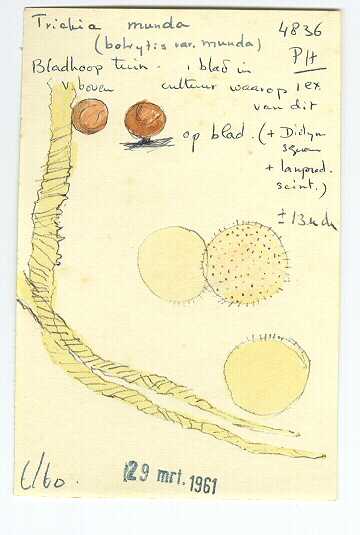 Trichia munda
(botrytis var. munda)
4836
PH
Bladhoop tuin. 1 blad in
v. boven cultuur waarop 1 ex
van dit
op blad. (+ Didym
squam
+ lamprod.
scint.)
± 13 µ
29 mrt. 1961